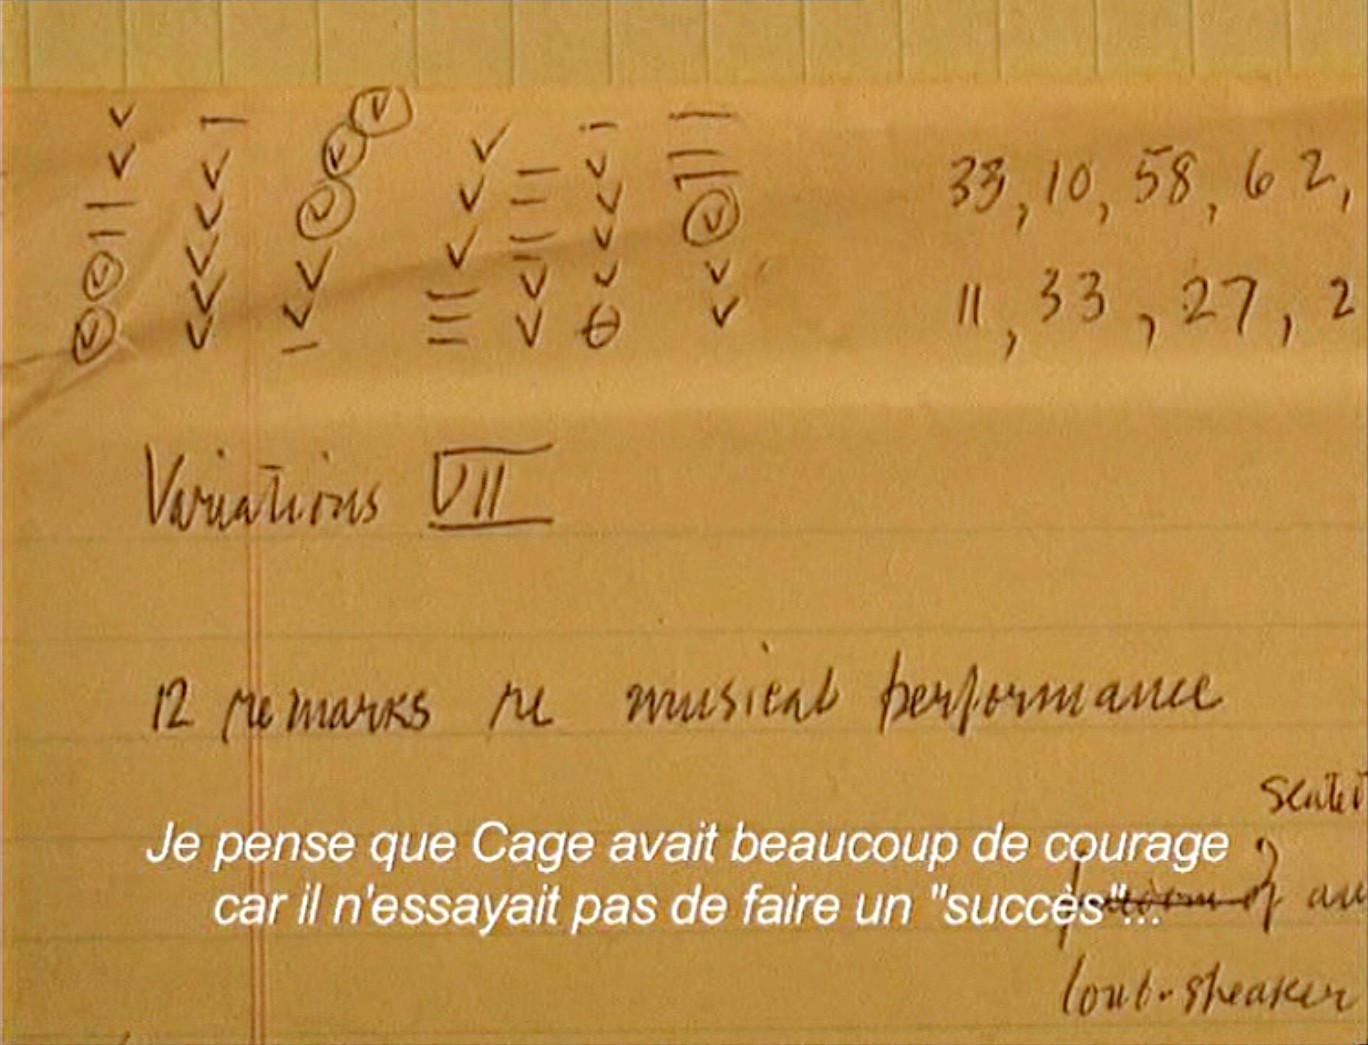 33, 10, 58, 62,
11, 33, 27, 2
Variations VII
12 remarks re musical performance
Je pense que Cage avait beaucoup de courage
car il n'essayait pas de faire un "succès"...
of
loud-speaker